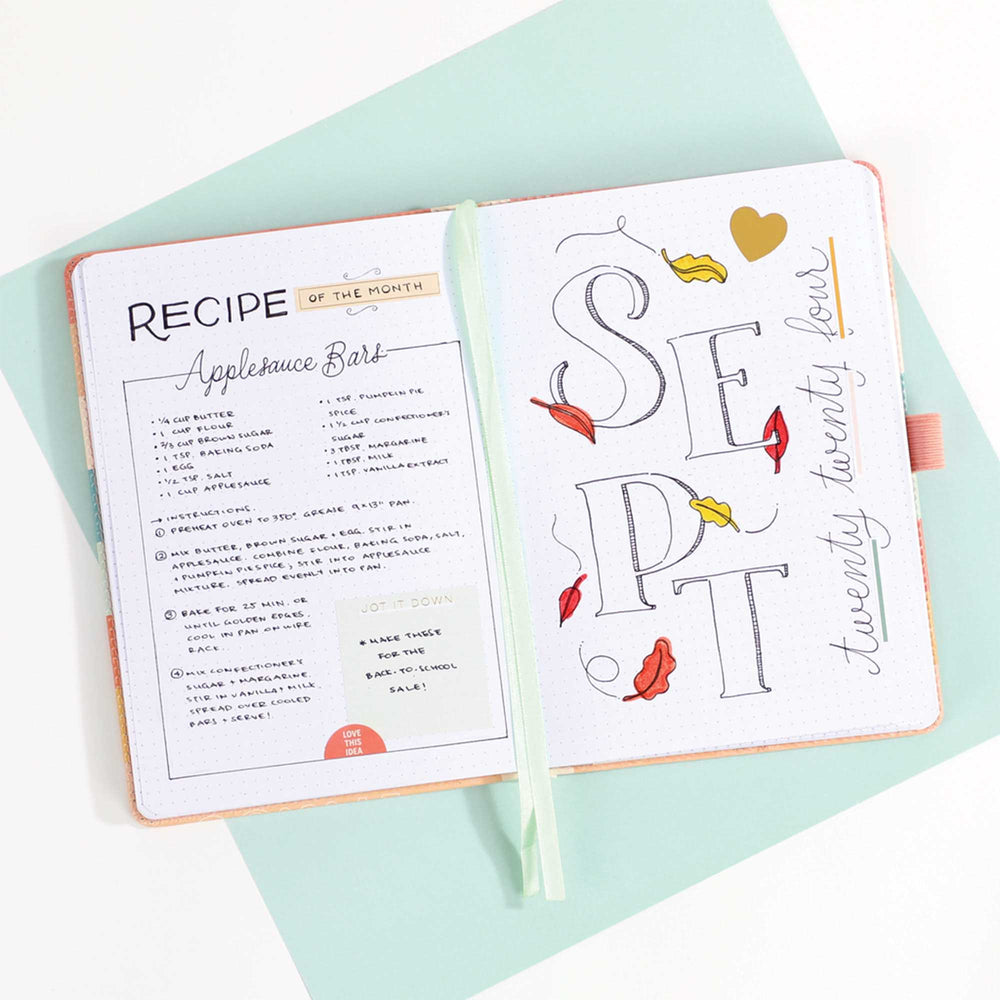 RECIPE OF THE MONTH
Applesauce Bars
• ¼ CUP BUTTER
• 1 CUP FLOUR
• ⅔ CUP BROWN SUGAR
• 1 TSP. BAKING SODA
• 1 EGG
• ½ TSP. SALT
• 1 CUP APPLESAUCE
• 1 TSP. PUMPKIN PIE
SPICE
• 1 ½ CUP CONFECTIONER'S
SUGAR
• 3 TBSP. MARGARINE
• 1 TBSP. MILK
• 1 TSP. VANILLA EXTRACT
→ INSTRUCTIONS.
① PREHEAT OVEN TO 350° GREASE 9X13" PAN.
② MIX BUTTER, BROWN SUGAR + EGG. STIR IN
APPLESAUCE. COMBINE FLOUR, BAKING SODA, SALT,
+ PUMPKIN PIE SPICE; STIR INTO APPLESAUCE
MIXTURE. SPREAD EVENLY INTO PAN.
③ BAKE FOR 25 MIN. OR
UNTIL GOLDEN EDGES.
COOL IN PAN ON WIRE
RACK.
④ MIX CONFECTIONERY
SUGAR + MARGARINE.
STIR IN VANILLA + MILK
SPREAD OVER COOLED
BARS + SERVE!
JOT IT DOWN
* MAKE THESE
FOR THE
BACK-TO-SCHOOL
SALE!
LOVE
THIS
IDEA
SE
PT
twenty twenty four